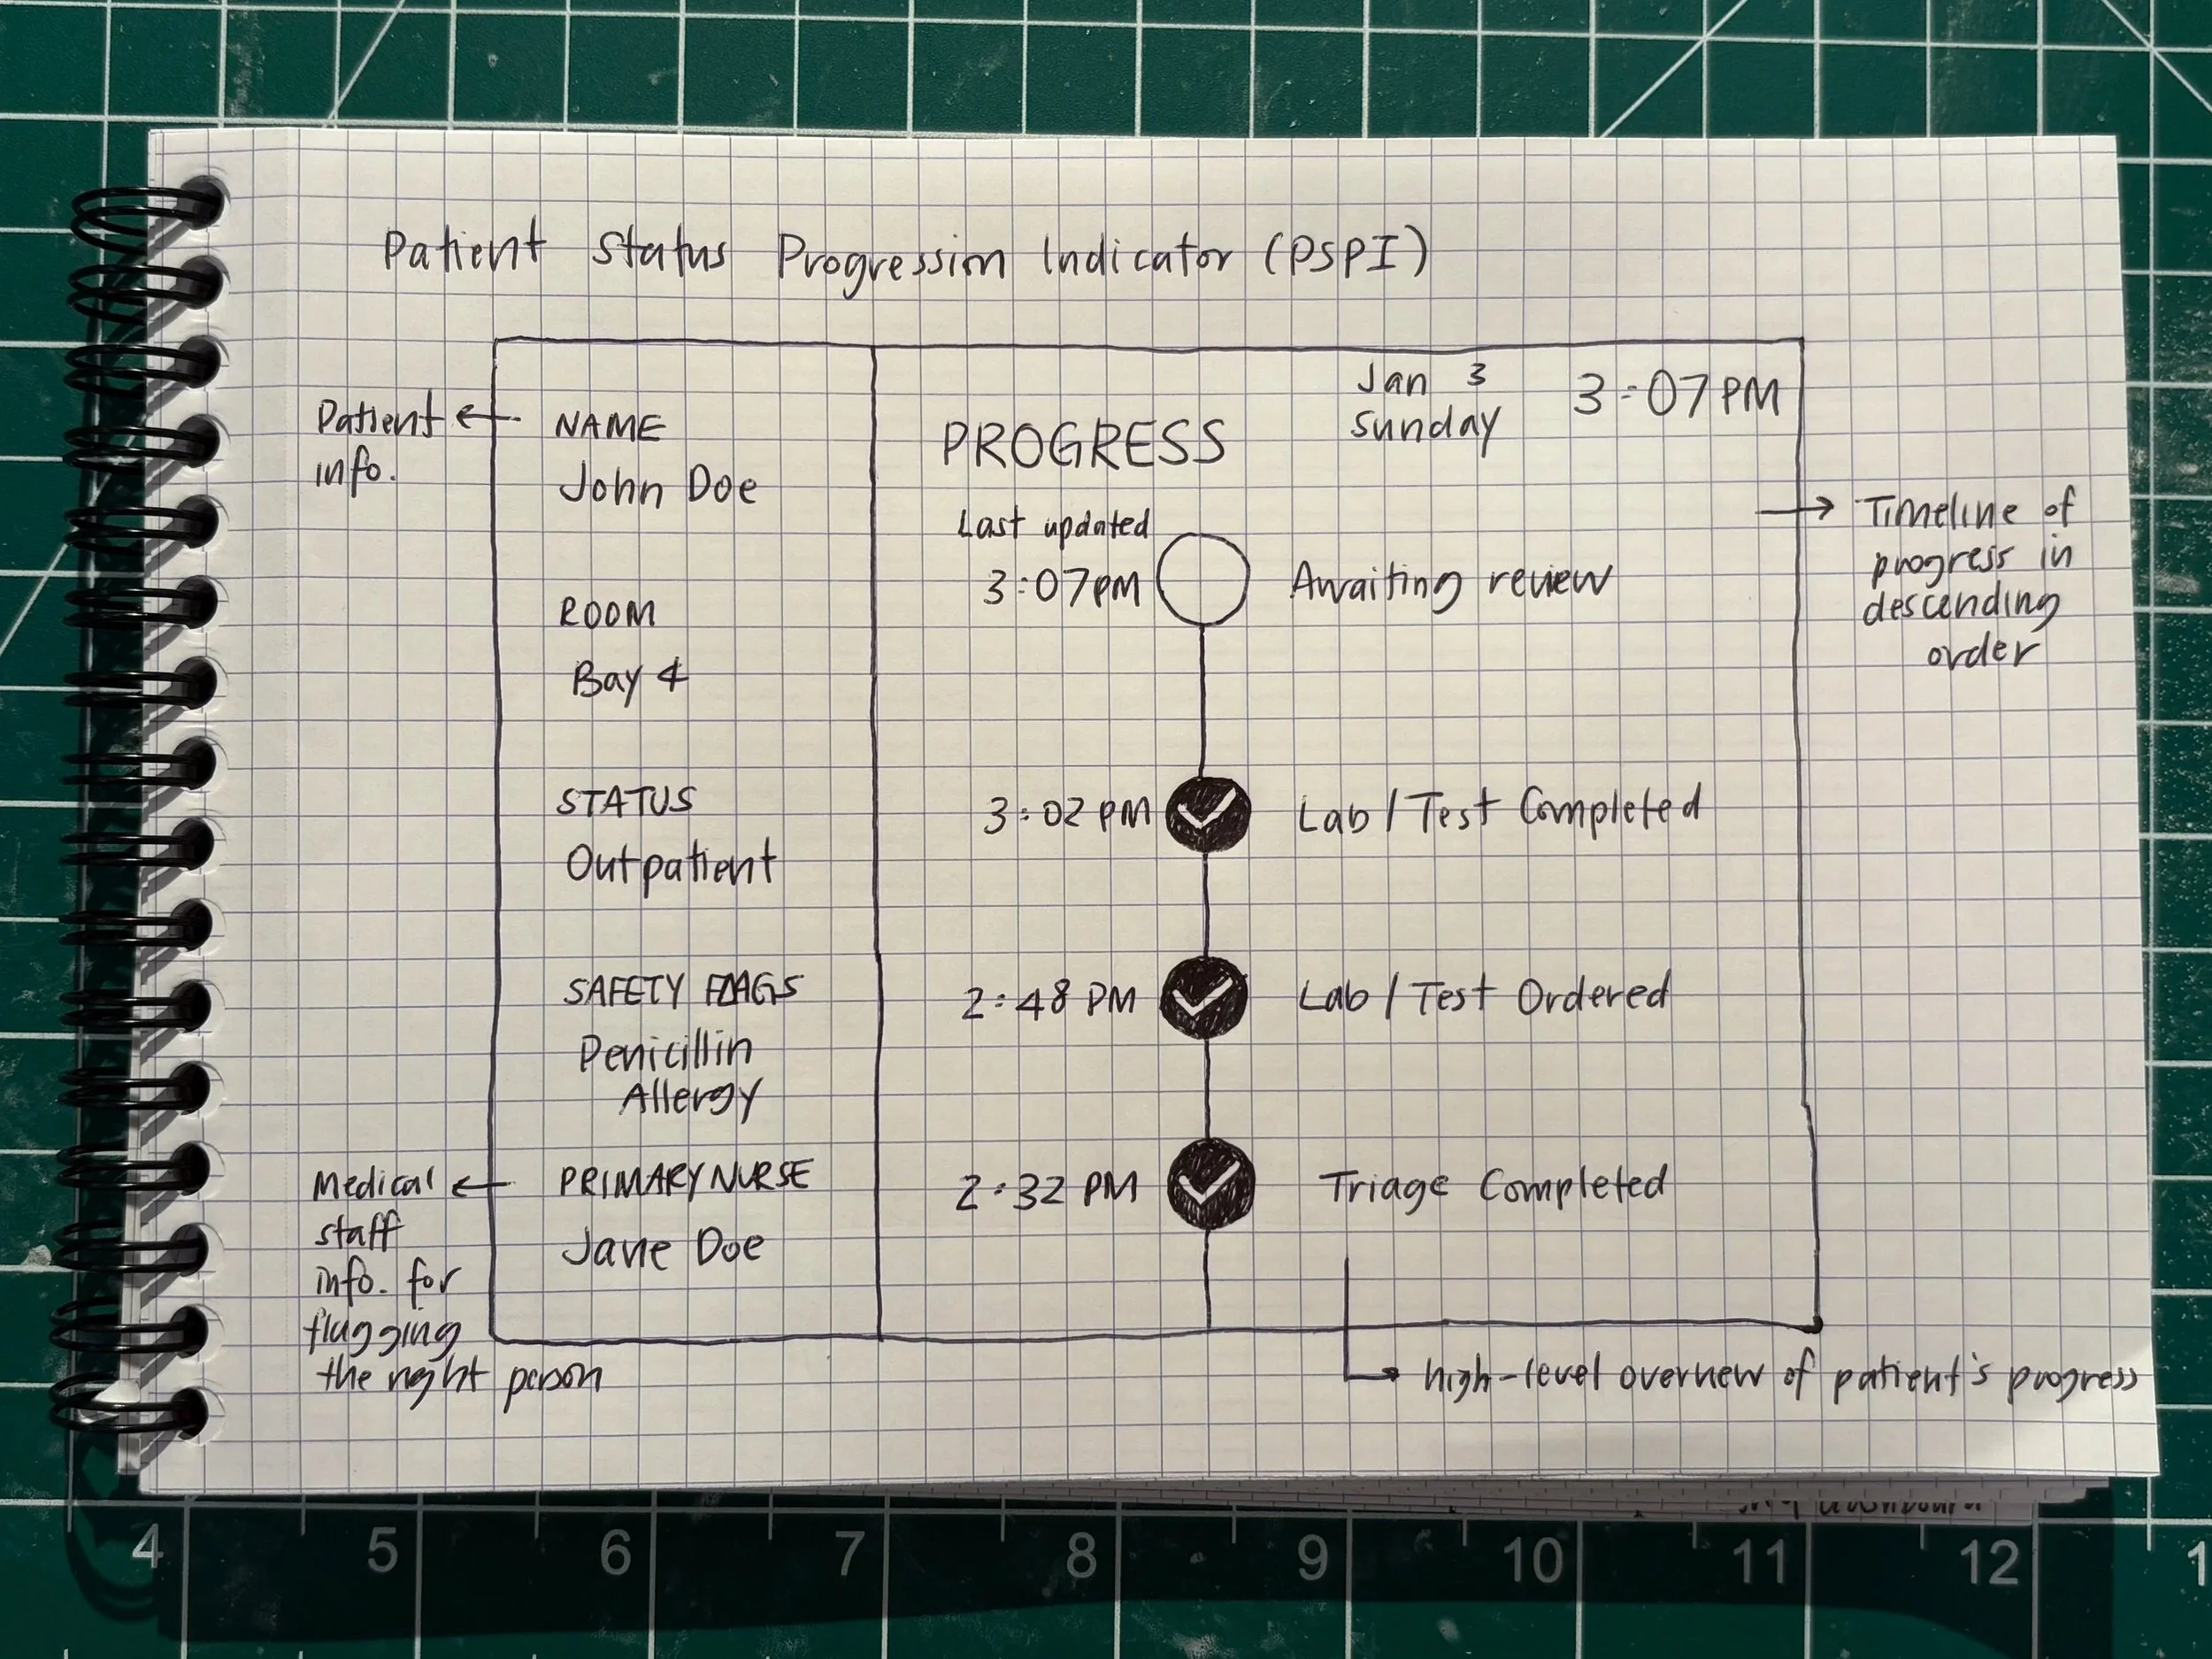 Patient Status Progression Indicator (PSPI)
Patient
info.
NAME
John Doe
ROOM
Bay 4
STATUS
Outpatient
SAFETY FLAGS
Penicillin
Allergy
Medical
staff
info. for
flagging
the right person
PRIMARY NURSE
Jane Doe
PROGRESS
Jan 3
Sunday
3:07PM
Last updated
3:07PM
Awaiting review
3:02 PM
Lab / Test Completed
2:48 PM
Lab / Test Ordered
2:32 PM
Triage Completed
Timeline of
progress in
descending
order
high-level overview of patient's progress
4 5 6 7 8 9 10 11 12